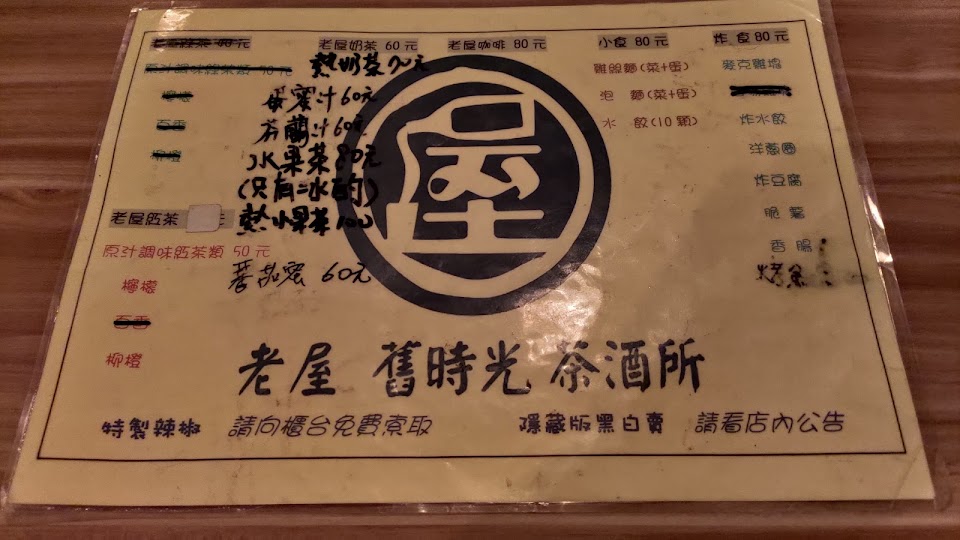 老屋奶茶 60元
熱奶茶70元
蛋蜜汁60元
芬蘭汁60元
水果茶80元
(只有冰的)
熱水果茶100
老屋䤑茶
原汁調味䤑茶類 50元
檸檬
柳橙
蕃茄蜜 60元
老屋咖啡 80元
小食 80元
雞絲麵(菜+蛋)
泡 麵(菜+蛋)
水 餃(10顆)
炸食80元
麥克雞塊
炸水餃
洋蔥圈
炸豆腐
脆薯
香腸
屋
老屋 舊時光 茶酒所
特製辣椒 請向櫃台免費索取
隱藏版黑白賣 請看店內公告